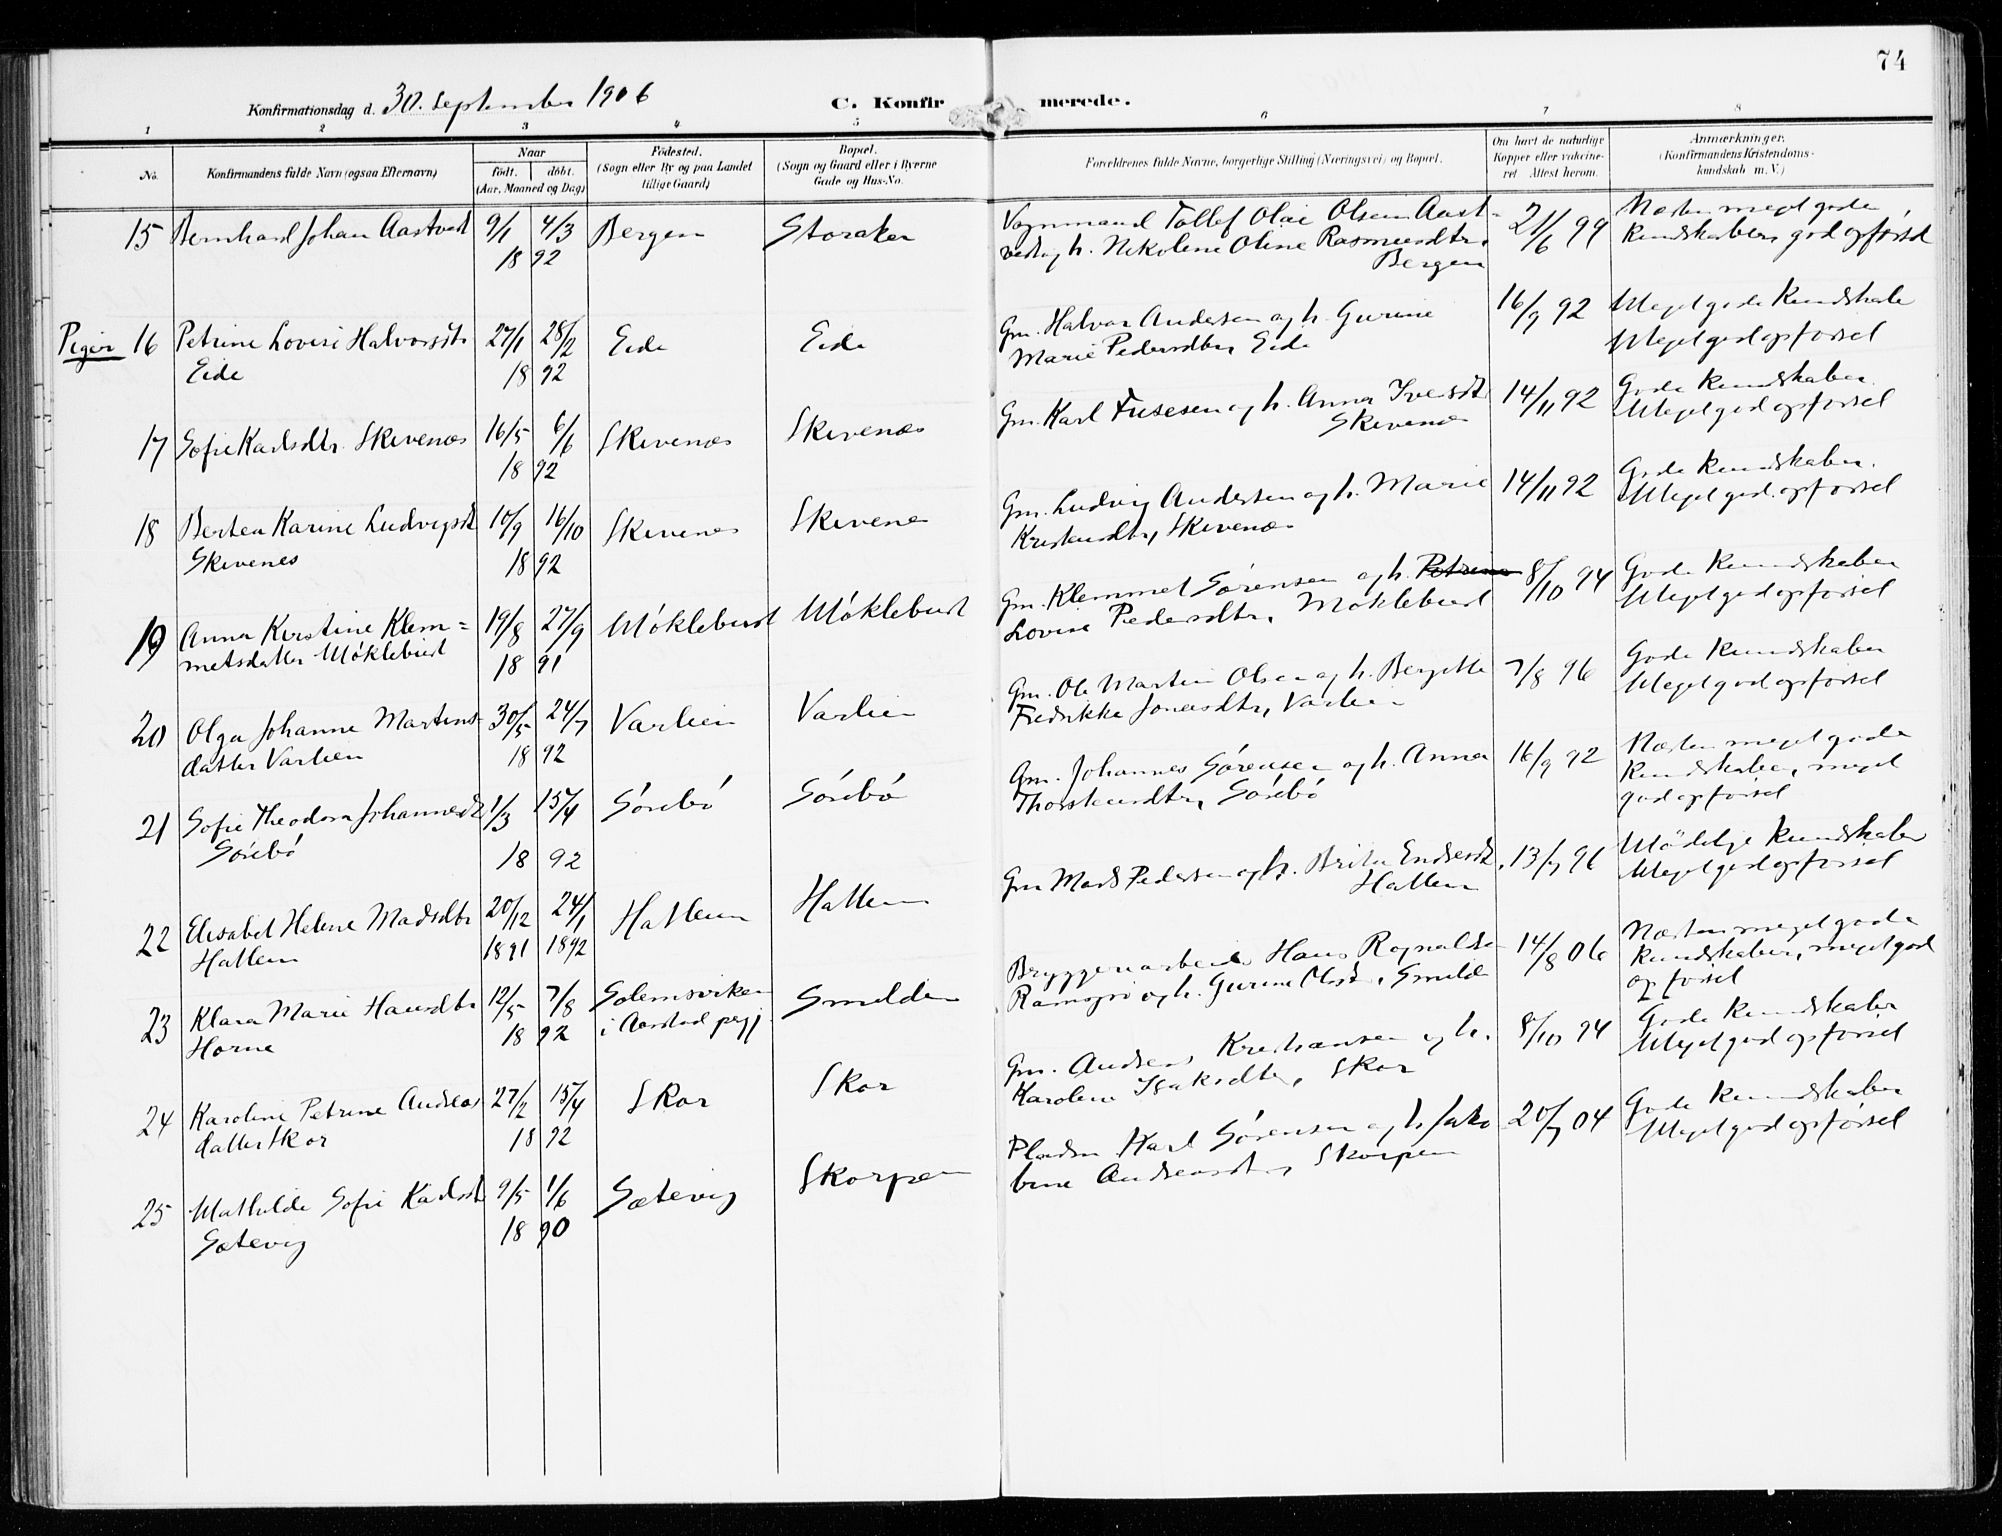 74
Konfirmationsdag d. 30. September 1906
C. Konfirmerede.
1 2 3 4 5 6 7 8
No.
Konfirmandens fulde Navn (ogsaa Efternavn)
Naar
født. døbt.
(Aar, Maaned og Dag)
Fødested.
(Sogn eller By og paa Landet
tillige Gaard)
Bopæl.
(Sogn og Gaard eller i Byerne
Gade og Hus-No.
Forældrenes fulde Navne, borgerlige Stilling (Næringsvei) og Bopæl.
Om havt de naturlige
Kopper eller vakcine-
ret Attest herom.
Anmærkninger.
(Konfirmandens Kristendoms-
kundskab m. V.)
15 Bernhard Johan Aastvedt 9/1 4/3 Bergen Storaker Vognmand Tollef Olai Olsen Aast- 21/6 99 Næsten meget gode
18 92 vedt og h. Nikoline Oline Rasmusdtr. Kundskaber, god opførsel
Bergen
Piger 16 Petrine Lovise Halvorsdtr 27/1 28/2 Eide Eide Gm. Halvor Andersen og h. Gurine 16/9 92 Meget gode Kundskab
Eide 18 92 Marie Pedersdtr, Eide Meget god opførsel
17 Sofie Karlsdtr. Skivenæs 16/5 6/6 Skivenæs Skivenæs Gm. Karl Tusesen og h. Anna Iversdtr 14/11 92 Gode Kundskaber.
18 92 Skivenæs Meget god opførsel
18 Bertea Karine Ludvigsdt 10/9 16/10 Skivenes Skivenes Gm. Ludvig Andersen og h. Marie 14/11 92 Gode Kundskaber.
Skivenes 18 92 Kristensdtr, Skivenæs Meget god opførsel
19 Anna Kirstine Klem= 19/8 27/9 Møklebust Møklebust Gm. Klemmet Sørensen og h. Petrine 8/10 94 Gode Kundskaber
metsdatter Møklebust 18 91 Lovise Pedersdtr. Møklebust Meget god opførsel
20 Olga Johanne Martins- 30/5 24/7 Varlien Varlien Gm. Ole Martin Olsen og h. Bergitte 7/8 96 Gode Kundskaber
datter Varlien 18 92 Fredrikke Jonasdtr, Varlien Meget god opførsel
21 Sofie Theodora Johannesdt 1/3 15/4 Sørebø Sørebø Gm. Johannes Sørensen og h. Anna 16/9 92 Næsten meget gode
Sørebø 18 92 Thorstensdtr, Sørebø Kundskaber, meget
god opførsel
22 Elisabet Helene Madsdtr 20/12 24/1 Hatlem Hatlem Gm Mads Pedersen og h. Brita Endresdt. 13/7 96 Mådelige Kundskaber
Hatlem 1891 1892 Hatlem Meget god opførsel
23 Klara Marie Hansdtr 12/5 7/8 Solemsviken Smilden Bryggeriarbeider Hans Ragnalds 14/8 06 Næsten meget gode
Horne 18 92 i Aarstad pgj. og h. Gurine Kundskaber, meget god
opførsel
24 Karoline Petrine Andreas 27/2 15/4 Skor Skor Gm. Andreas Kristiansen og h. 8/10 94 Gode Kundskaber
datter Skor 18 92 Karoline Isaksdtr, Skor Meget god opførsel
25 Mathilde Sofie Karlsdt 9/5 1/6 Sætevig Skorpen Pladsm Karl Sørensen og h Jako 20/7 04 Gode Kundskaber
Sætevig 18 90 bine Andreasdtr, Skorpen Meget god opførsel